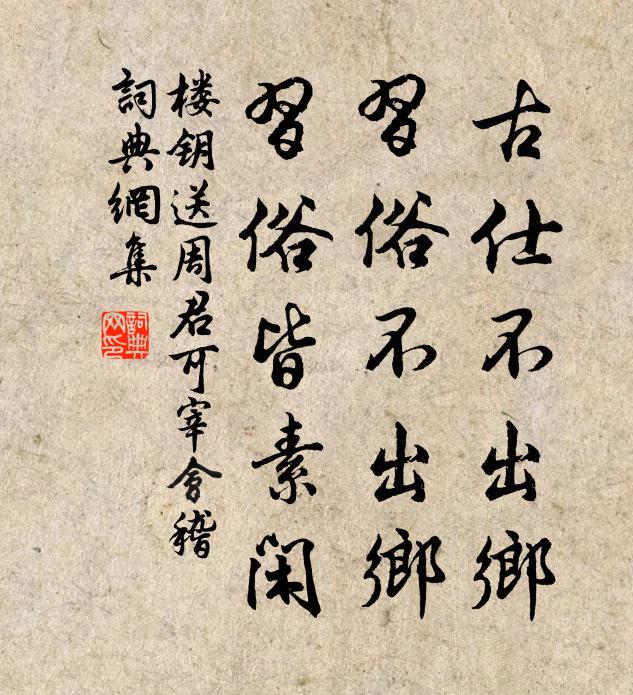 古仕不出鄉
習俗不出鄉
習俗皆素閑
楼钥送周君可宰會稽
詞典網集
詞典
网印